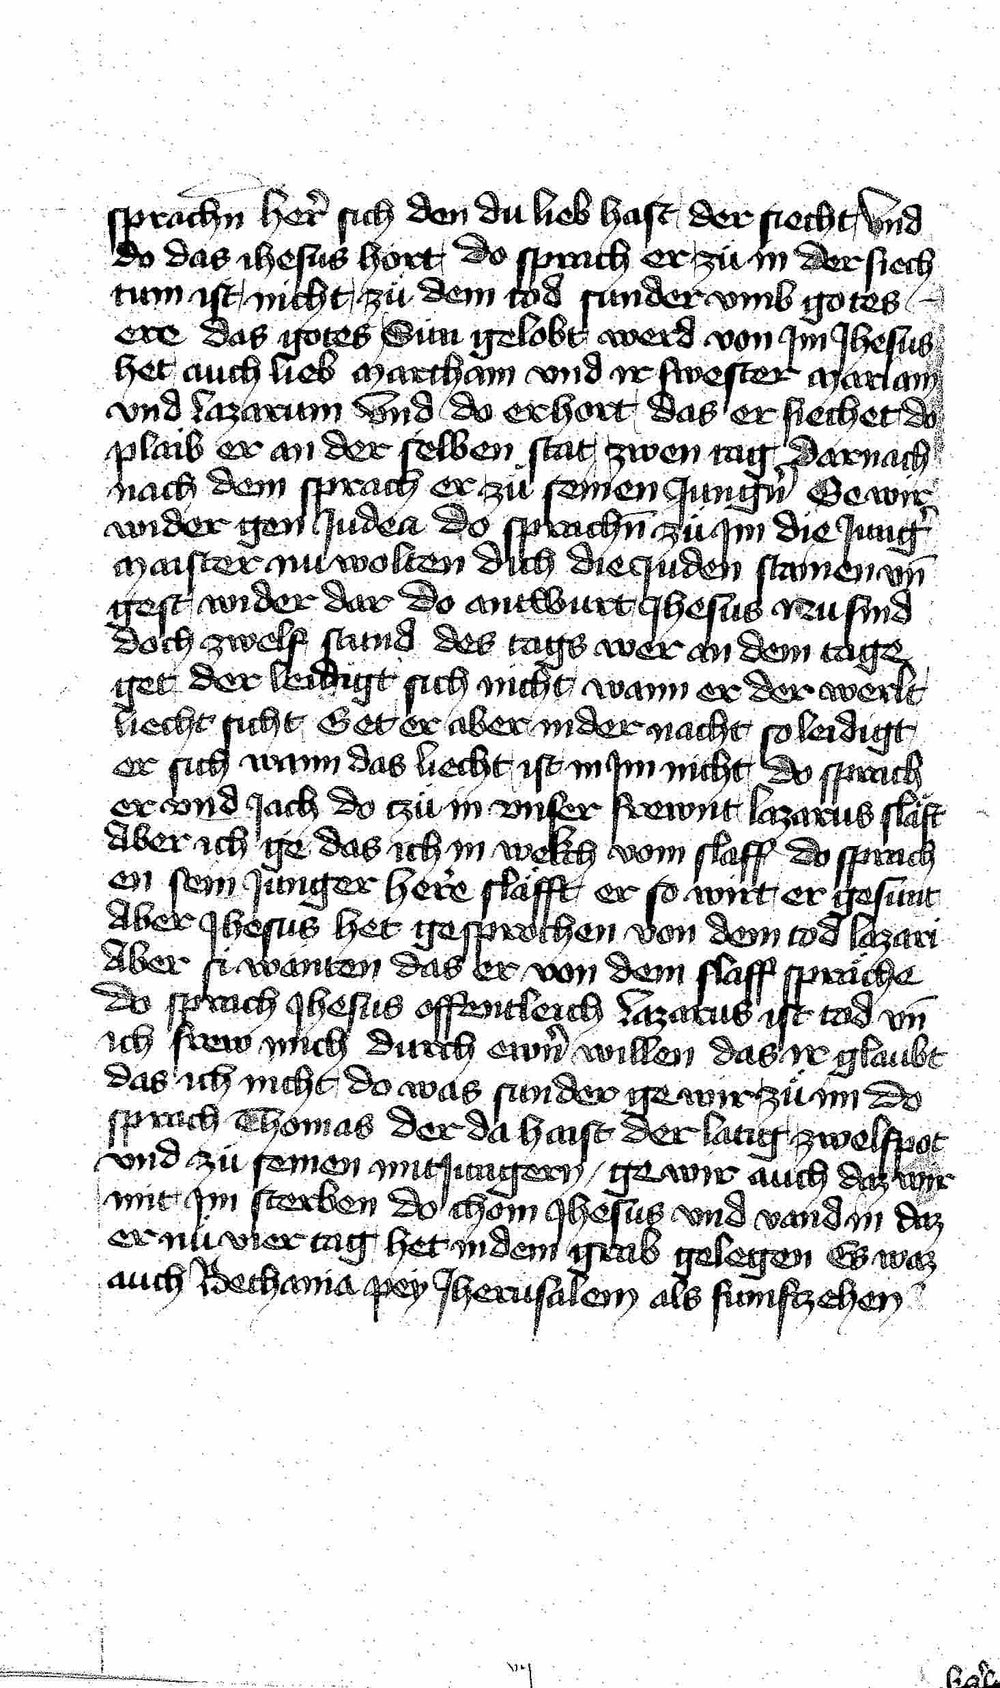 sprachn̄ her̄ sich den du lieb hast der siecht Vnd
do das ihesus hort do sprach er zu in der siech
tum ist nicht zů dem tod sunder vmb gotes
ere das gotes Sun gelobt werd von Im Jhesus
het auch lieb Martham vnd ir swester Mariam
vnd Lazarum Vnd do er hort das er siechet do
plaib er an der selben stat zwen tag Darnach
nach dem sprach er zů seinen Jungn̄ Ge wir
wider gen Judea do sprachn̄ zů Im die Junḡ
Maister nu wolten dich die Juden stainen vn̄
gest wider dar Do antwurt Jhesus Nu sind
doch zwelf stund des tags wer an dem tage
get der leidigt sich nicht wann er der werlt
liecht sicht Get er aber in der nacht so leidigt
er sich wann das liecht ist in Im nicht Do sprach
er vnd Jach do czů in vnser frewnt lazarus släft
Aber ich ge das ich in wekch vom slaff do sprach
en sein Junger her̄e släfft er so wirt er gesunt
Aber Jhesus het gesprochen von dem tod lazari
Aber si wanten das er von dem slaff spräche
Do sprach Jhesus offentleich Lazarus ist tod vn̄
ich frew mich durch ewrn̄ willen das ir glaubt
das ich nicht do was sunder ge wir zů im Do
sprach Thomas der da haist der latig zwelfpot
vnd zů seinen mitJungern / ge wir auch daz wir
mit Im sterben do chom Jhesus vnd vand in daz
er nů vier tag het in dem grab gelegen Es waz
auch Bethania pey Jherusalem als fumfczehen